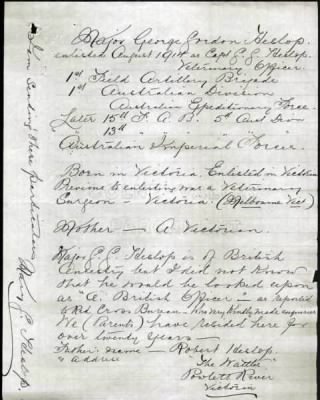 Major George Gordon Heslop.
enlisted August 1914 as Capt G. G. Heslop.
Veterinary Officer.
1st Field Artillery Brigade
1st Australian Division
Australian Expeditionary Force.
Later 15th F. A. B. 5th Aust Div
13th " " "
Australian Imperial Force.
Born in Victoria. Enlisted in Victoria
Previous to enlisting was a Veterinary
Surgeon – Victoria. (Melbourne Vict)
Mother – A Victorian.
Major G. G. Heslop is of British
Ancestry but I did not know
that he would be looked upon
as "A" British Officer – as reported
to Red Cross Bureau. who very kindly made enquiries
We (Parents) have resided here for
over twenty years –
Father's name – Robert Heslop.
" Address The Wattles
Powlett River
Victoria
I am sending these particulars
Mary C. Heslop.